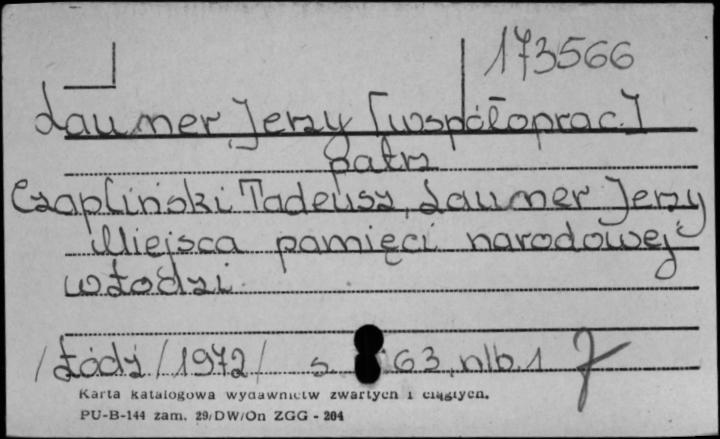 173566
Laumer, Jerzy [współoprac.]
patrz
Czapliński Tadeusz, Laumer Jerzy
Miejsca pamięci narodowej
w Łodzi.
/Łódź/1972/ s. 63, nlb. 1
Karta katalogowa wydawnictw zwartych i ciągłych.
PU-B-144 zam. 29/DW/On ZGG - 204